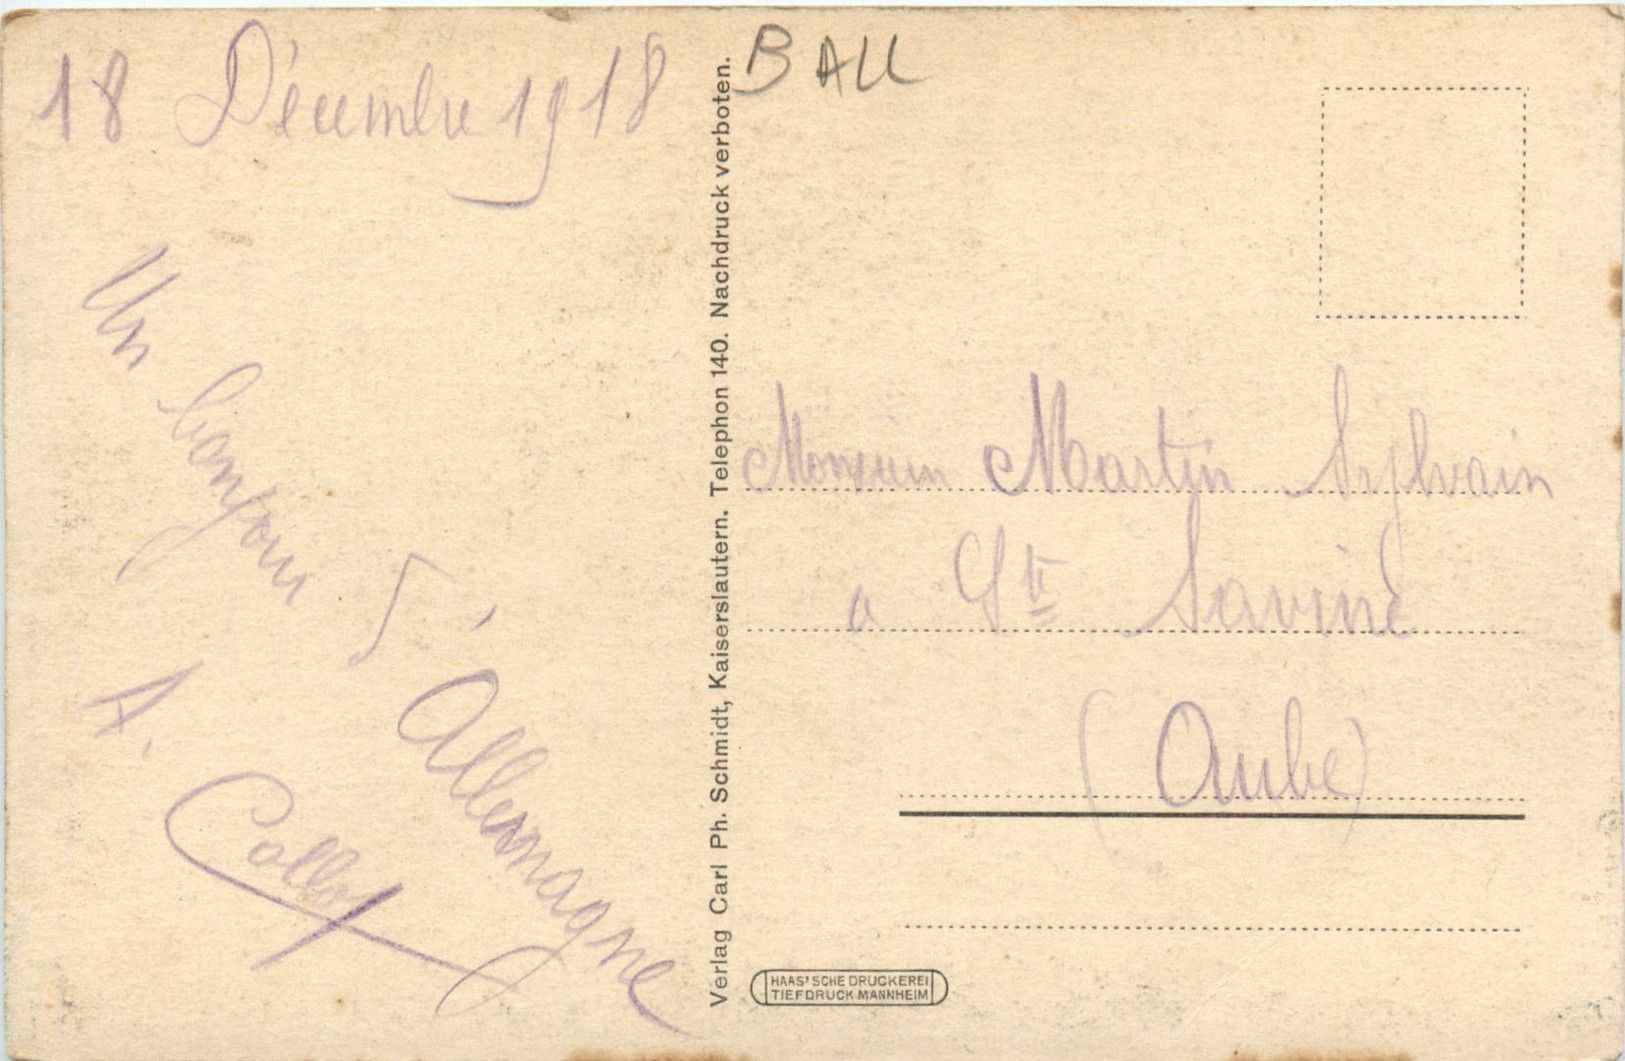 18 Décembre 1918
Un bonjour
d'Allemagne
A. Collot
BALL
Verlag Carl Ph. Schmidt, Kaiserslautern. Telephon 140. Nachdruck verboten.
Monsieur Martin Sylvain
a Ste Savine
(Aube)
HAAS'SCHE DRUCKEREI
TIEFDRUCK MANNHEIM